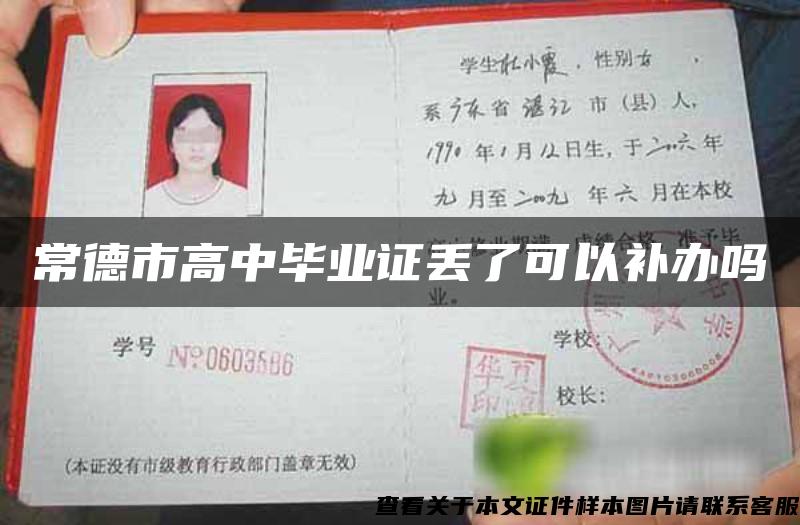 学生杜小霞，性别女，
系广东省湛江市（县）人，
1990年1月12日生，于二〇〇六年
九月至二〇〇九年六月在本校
成绩合格，准予毕
常德市高中毕业证丢了可以补办吗
业。
学校：
学号 №0603586
华夏
印
校长：
（本证没有市级教育行政部门盖章无效）
查看关于本文证件样本图片请联系客服